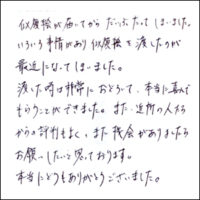 似顔絵が届いてからだいぶたってしまいました。
いろいろ事情があり似顔絵を渡したのが
最近になってしまいました。
渡した時は非常におどろいて、本当に喜んで
もらうことができました。また、近所の人たち
からの評判もよく、また機会がありましたら
お願いしたいと思っております。
本当にどうもありがとうございました。